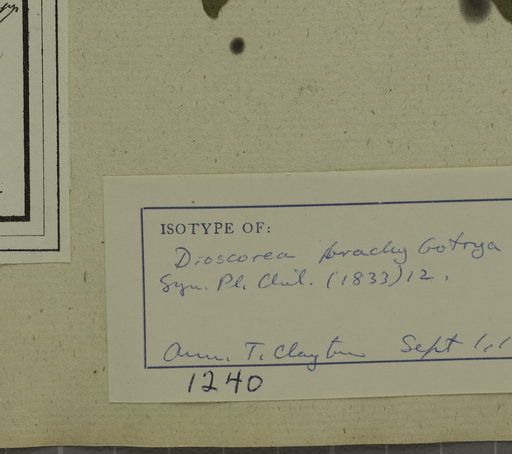 ISOTYPE OF:
Dioscorea brachybotrya
Syn. Pl. Chil. (1833) 12.
Ann. T. Clayton Sept 1, 1
1240